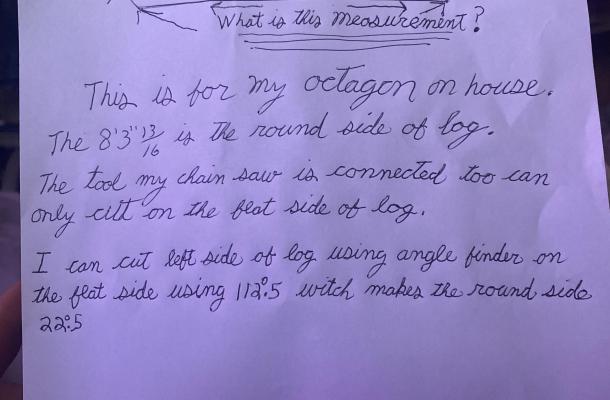 What is this measurement?
This is for my octagon on house.
The 8'3" 13/16 is the round side of log.
The tool my chain saw is connected too can
only cut on the flat side of log.
I can cut left side of log using angle finder on
the flat side using 112°.5 witch makes the round side
22°.5